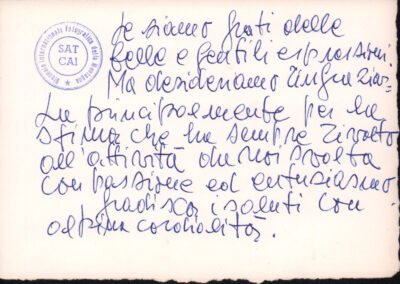 Le siamo grati delle
belle e gentili espressioni.
Ma desideriamo ringraziar-
La principalmente per la
stima che ha sempre rivolto
all'attività da noi svolta
con passione ed entusiasmo
gradisca i saluti con
alpina cordialità.
SAT
CAI
Internazionale Fotografica della Montagna